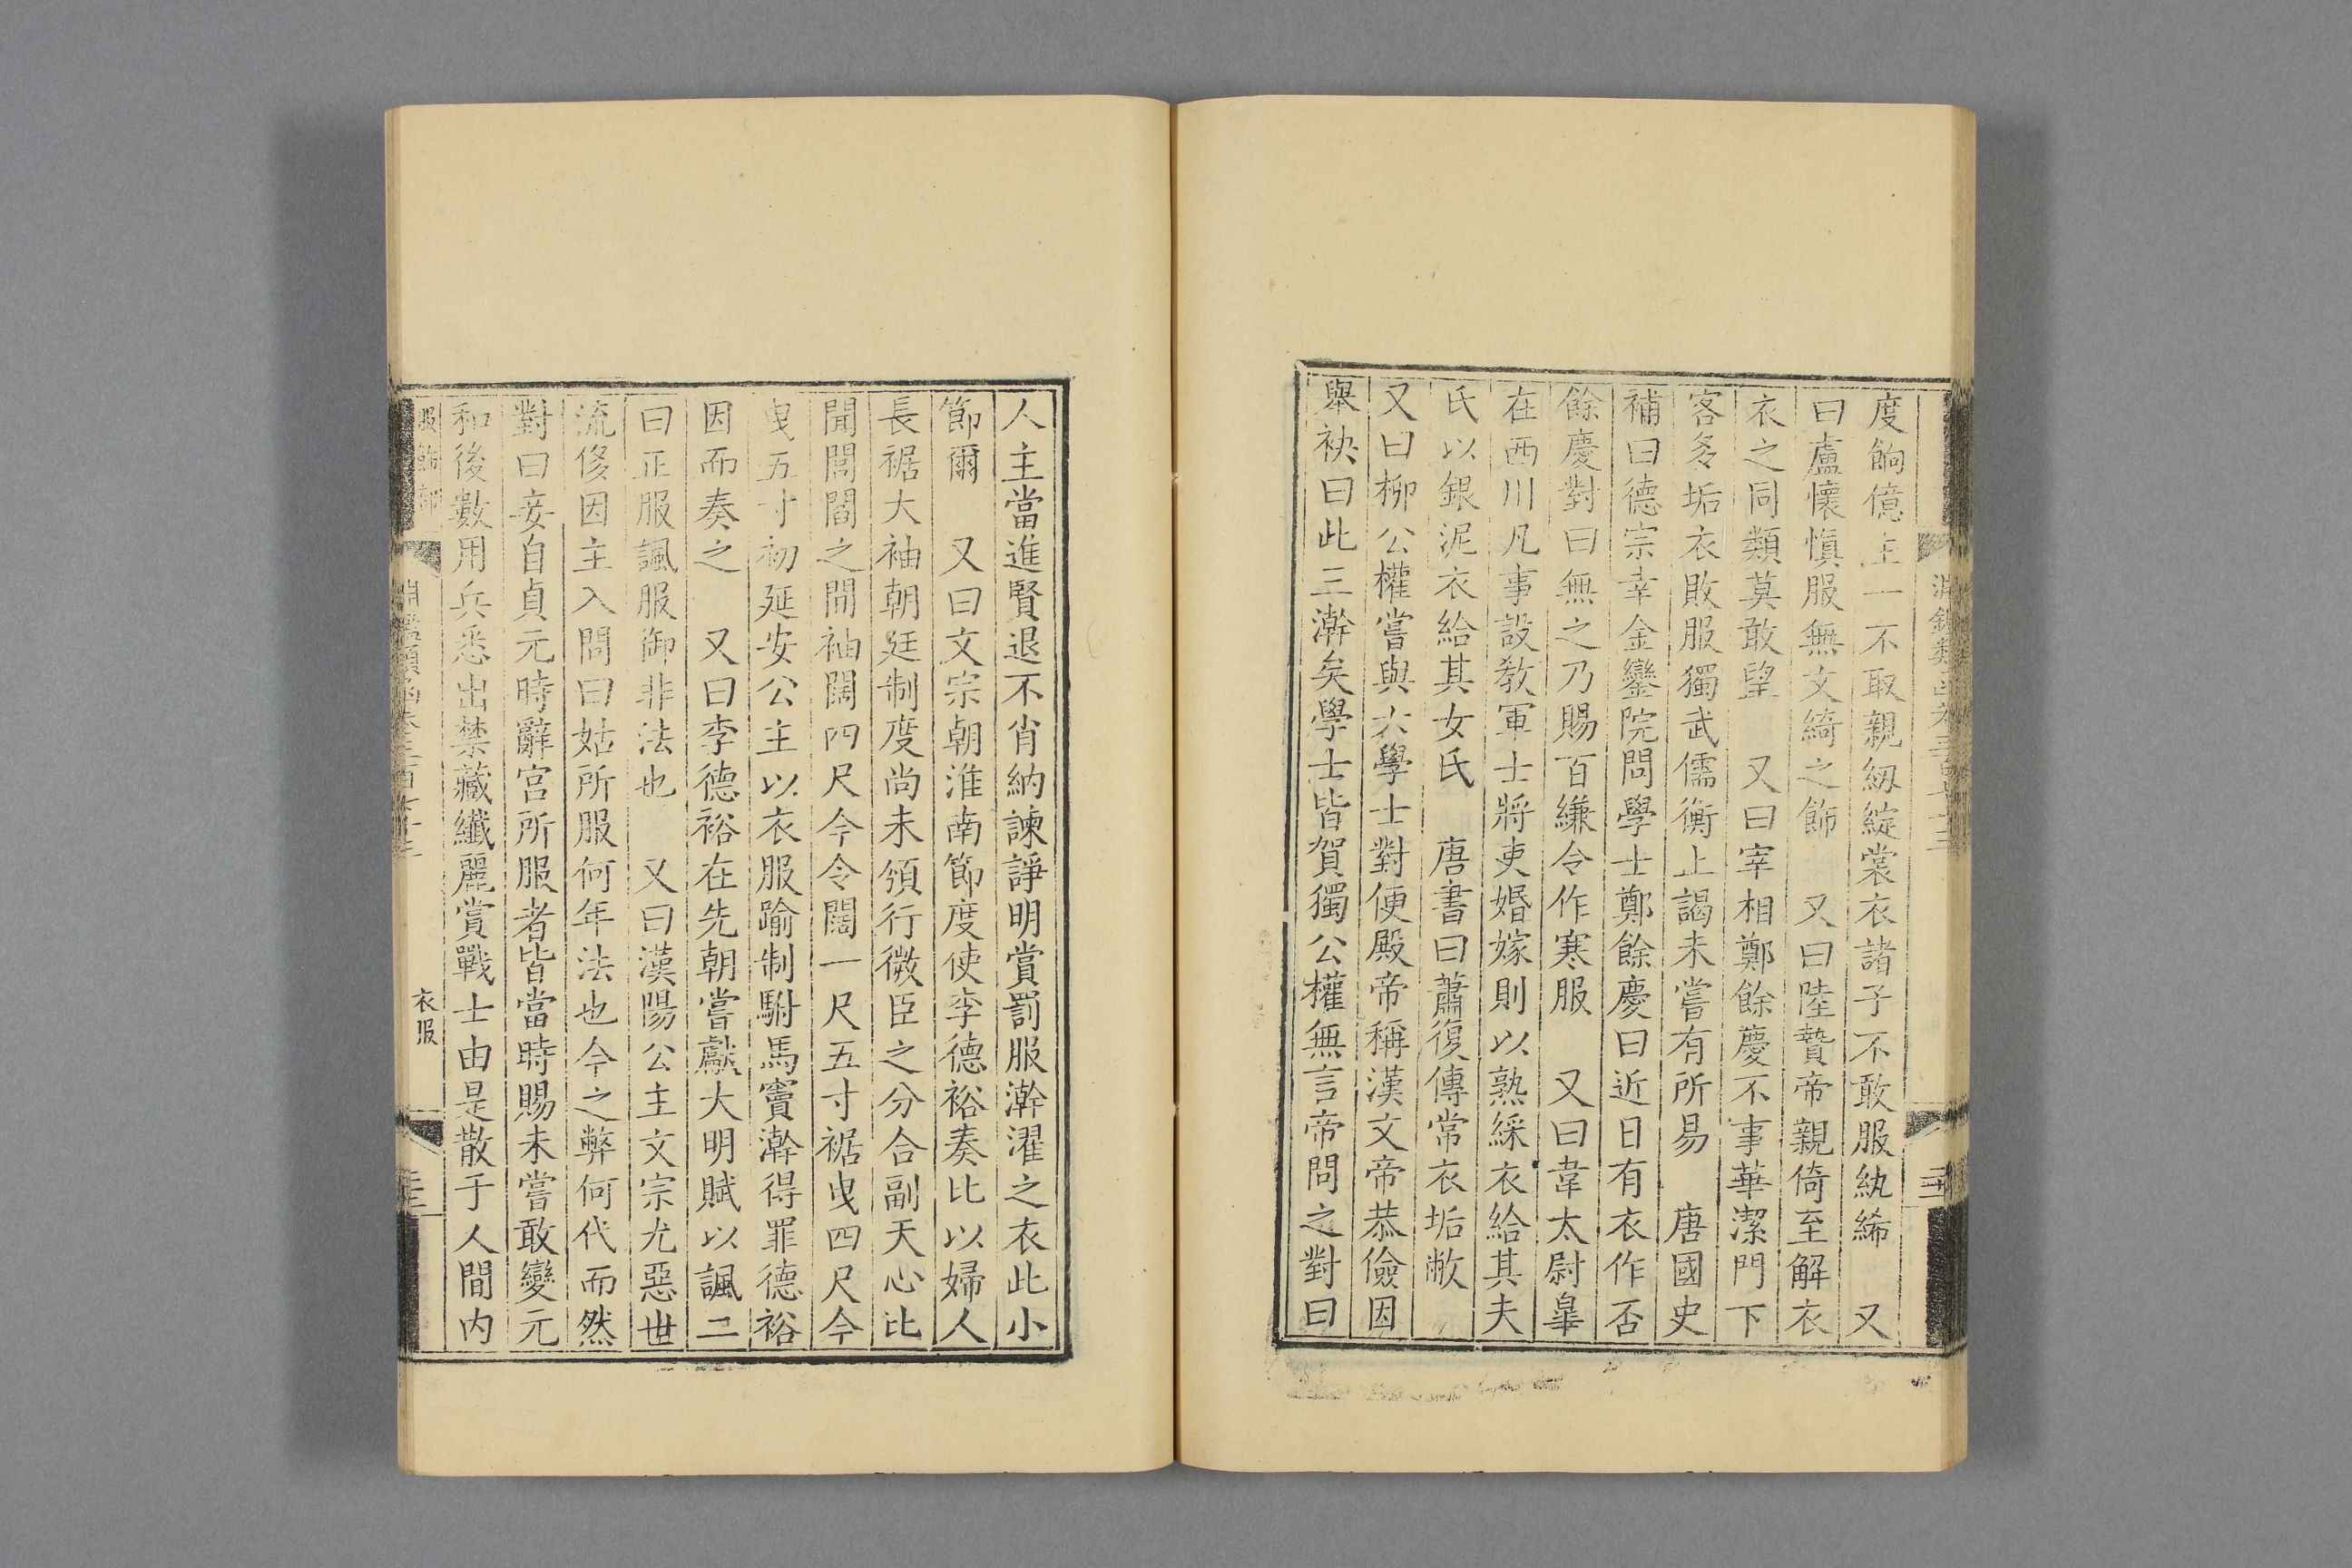 度餉億主一不取親紉綻裳衣諸子不敢服紈綺　又
曰盧懷愼服無文綺之飾　又曰陸贄帝親倚至解衣
衣之同類莫敢望　又曰宰相鄭餘慶不事華潔門下
客多垢衣敗服獨武儒衡上謁未嘗有所易　唐國史
補曰德宗幸金鑾院問學士鄭餘慶曰近日有衣作否
餘慶對曰無之乃賜百縑令作寒服　又曰韋太尉臯
在西川凡事設敎軍士將吏婚嫁則以熟綵衣給其夫
氏以銀泥衣給其女氏　唐書曰蕭復傳常衣垢敝
又曰柳公權嘗與六學士對便殿帝稱漢文帝恭儉因
舉袂曰此三澣矣學士皆賀獨公權無言帝問之對曰
人主當進賢退不肖納諫諍明賞罰服澣濯之衣此小
節爾　又曰文宗朝淮南節度使李德裕奏比以婦人
長裾大袖朝廷制度尚未頒行微臣之分合副天心比
聞閭閻之間袖闊四尺今令闊一尺五寸裾曳四尺今
曳五寸初延安公主以衣服踰制駙馬竇澣得罪德裕
因而奏之　又曰李德裕在先朝嘗獻大明賦以諷二
曰正服諷服御非法也　又曰漢陽公主文宗尤惡世
流侈因主入問曰姑所服何年法也今之弊何代而然
對曰妾自貞元時辭宮所服者皆當時賜未嘗敢變元
和後數用兵悉出禁藏纖麗賞戰士由是散于人間內
服飾部
衣服